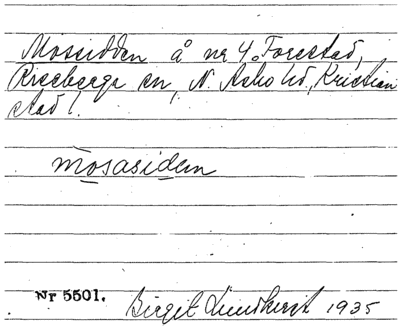 Mossidden å nr 4 Forestad,
Riseberga sn, N. Åsbo hd., Kristian
stad l.
mosasidem
Nr 5501.
Birgit Lundkvist 1935